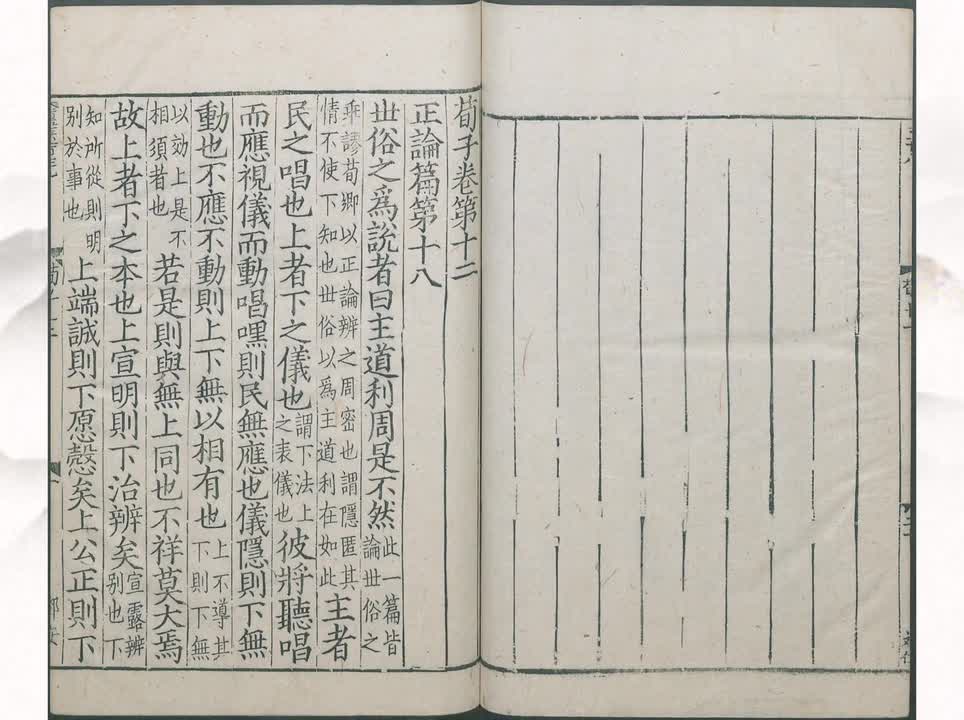 荀子卷第十二
正論篇第十八
世俗之爲說者曰主道利周是不然此一篇皆論世俗之
乖謬荀卿以正論辨之周密也謂隱匿其情不使下知也世俗以爲主道利在如此主者
民之唱也上者下之儀也謂下法上之表儀也彼將聽唱
而應視儀而動唱嘿則民無應也儀隱則下無
動也不應不動則上下無以相有也上不導其下則下無
以効上是不相須者也若是則與無上同也不祥莫大焉
故上者下之本也上宣明則下治辨矣宣露辨别也下
知所從則明别於事也上端誠則下愿慤矣上公正則下